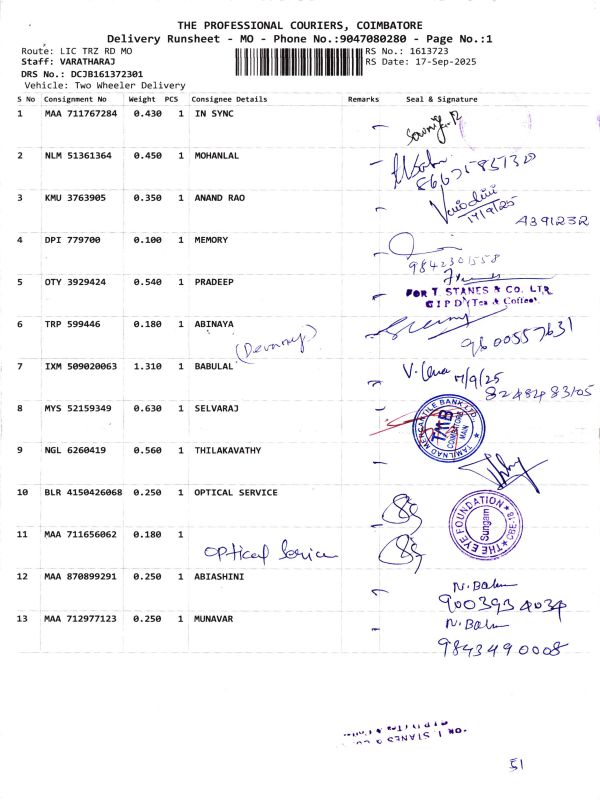 THE PROFESSIONAL COURIERS, COIMBATORE
Delivery Runsheet - MO - Phone No.:9047080280 - Page No.:1
Route: LIC TRZ RD MO RS No.: 1613723
Staff: VARATHARAJ RS Date: 17-Sep-2025
DRS No.: DCJB161372301
Vehicle: Two Wheeler Delivery
S No Consignment No Weight PCS Consignee Details Remarks Seal & Signature
1 MAA 711767284 0.430 1 IN SYNC
2 NLM 51361364 0.450 1 MOHANLAL
3 KMU 3763905 0.350 1 ANAND RAO
17/9/25
A391232
4 DPI 779700 0.100 1 MEMORY
9842301558
5 OTY 3929424 0.540 1 PRADEEP
FOR T. STANES & CO. LTD.
CIPD (Tea & Coffee)
6 TRP 599446 0.180 1 ABINAYA
9600557631
7 IXM 509020063 1.310 1 BABULAL
17/9/25
8248483105
8 MYS 52159349 0.630 1 SELVARAJ
TAMILNAD MERCANTILE BANK LTD
TMB
COIMBATORE
MAIN
9 NGL 6260419 0.560 1 THILAKAVATHY
10 BLR 4150426068 0.250 1 OPTICAL SERVICE
THE EYE FOUNDATION
Sungam
CBE-18
11 MAA 711656062 0.180 1
Optical Service
12 MAA 870899291 0.250 1 ABIASHINI
N. Balu
9003934034
13 MAA 712977123 0.250 1 MUNAVAR
N. Balu
9843490008
51